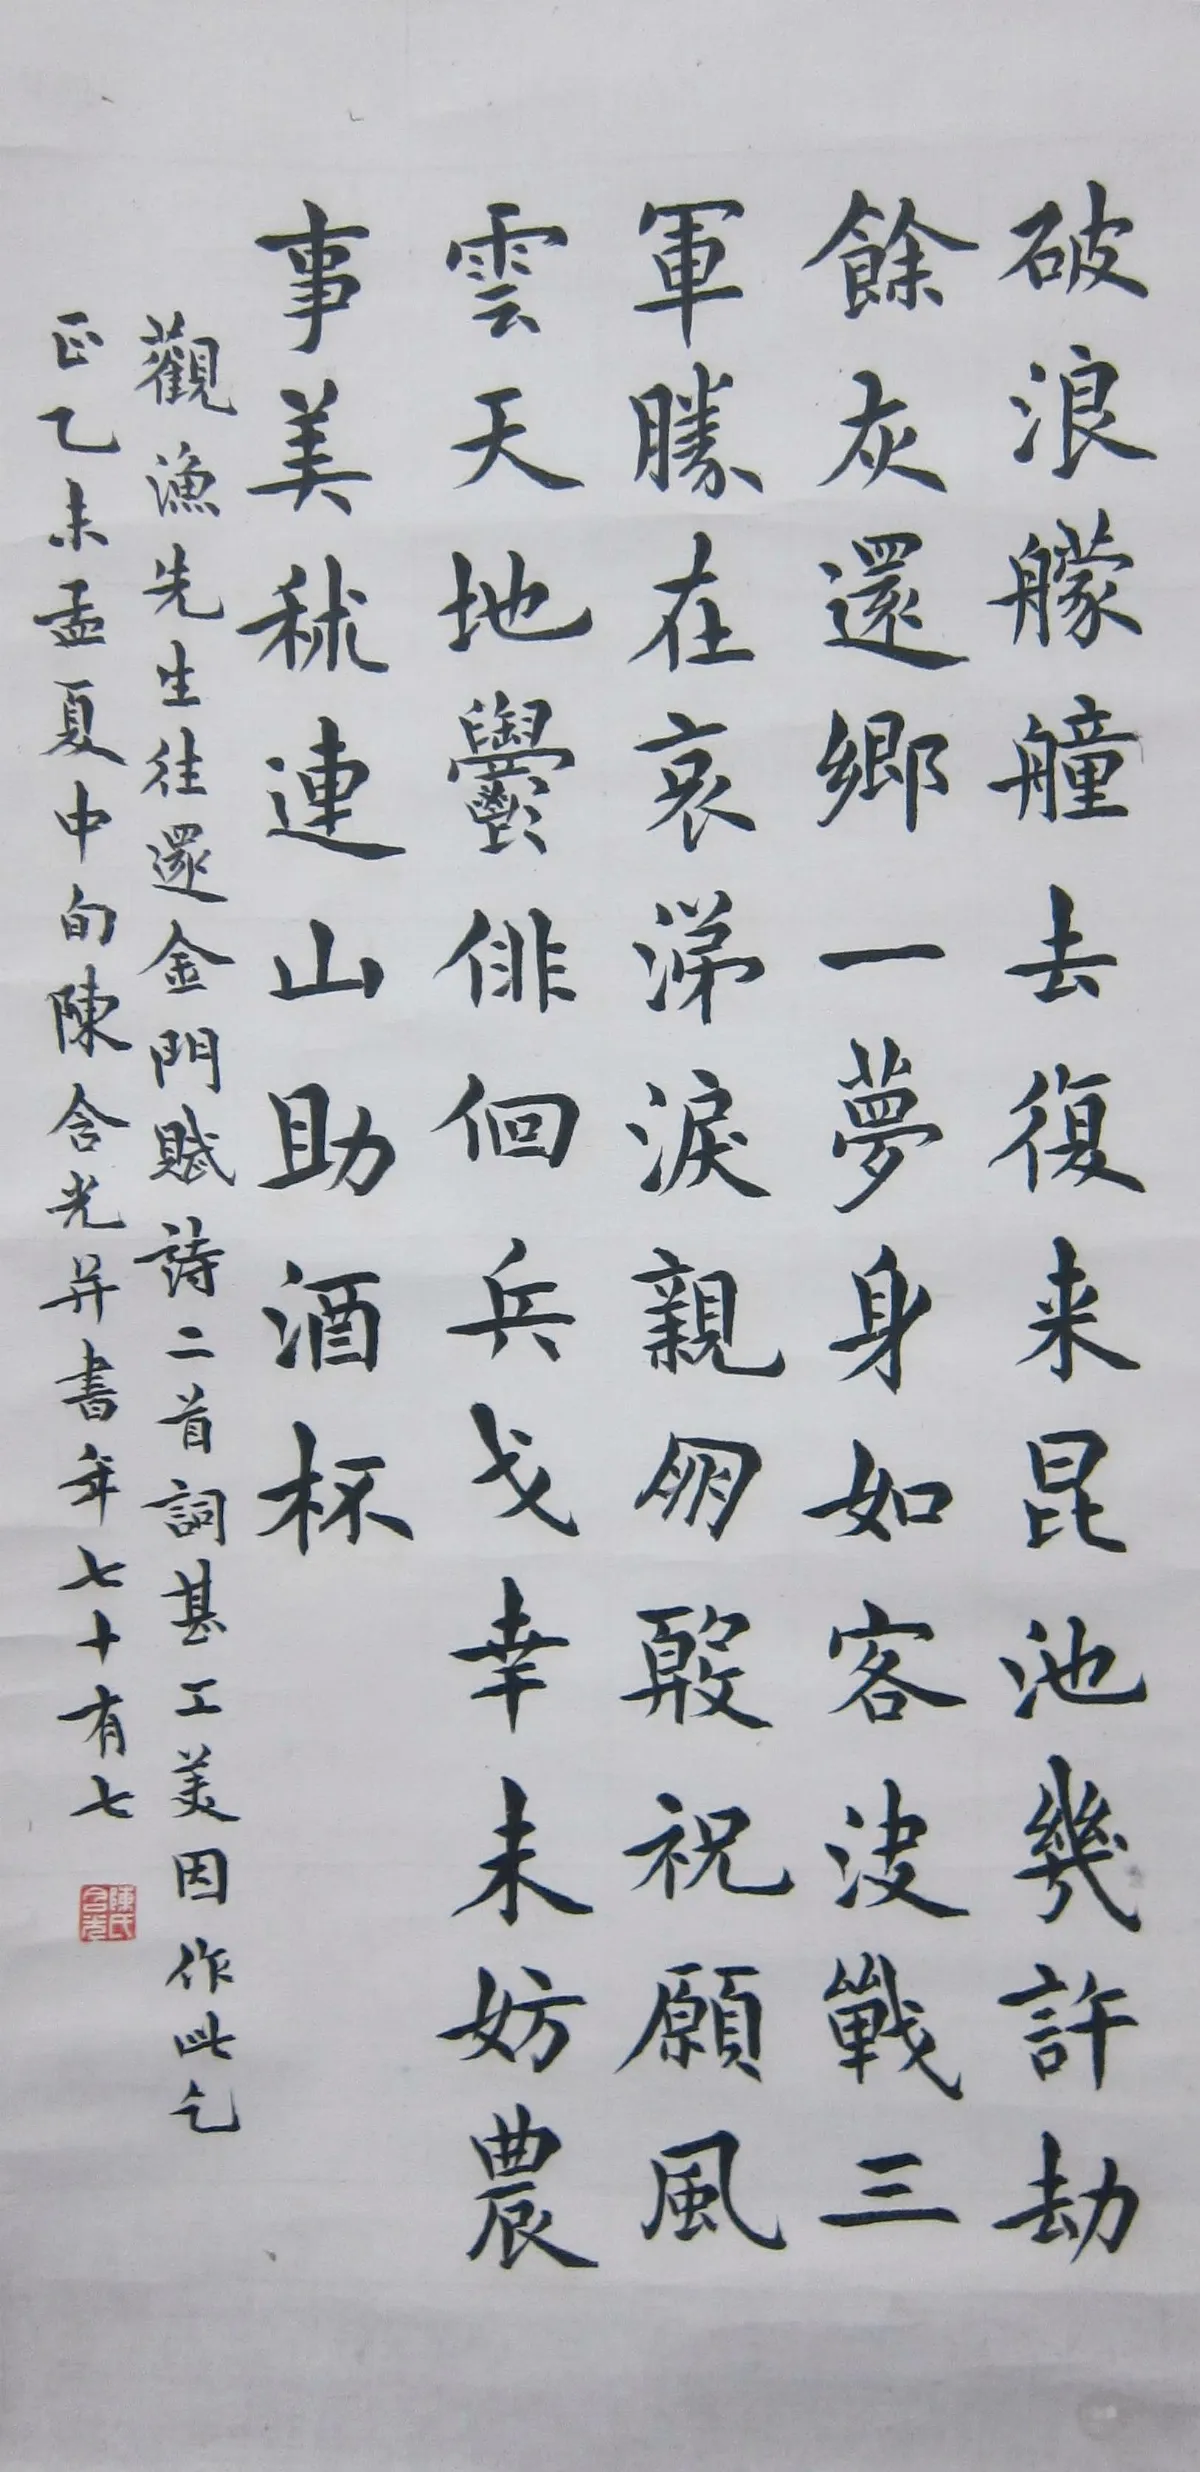 破浪艨艟去復来昆池幾許劫
餘灰還鄉一夢身如客決戰三
軍勝在哀涕淚親朋殷祝願風
雲天地鬱徘徊兵戈幸未妨農
事美秫連山助酒杯
觀漁先生往還金門賦詩二首詞甚工美因作此乞
正乙未孟夏中旬陳含光并書年七十有七
陳氏含光